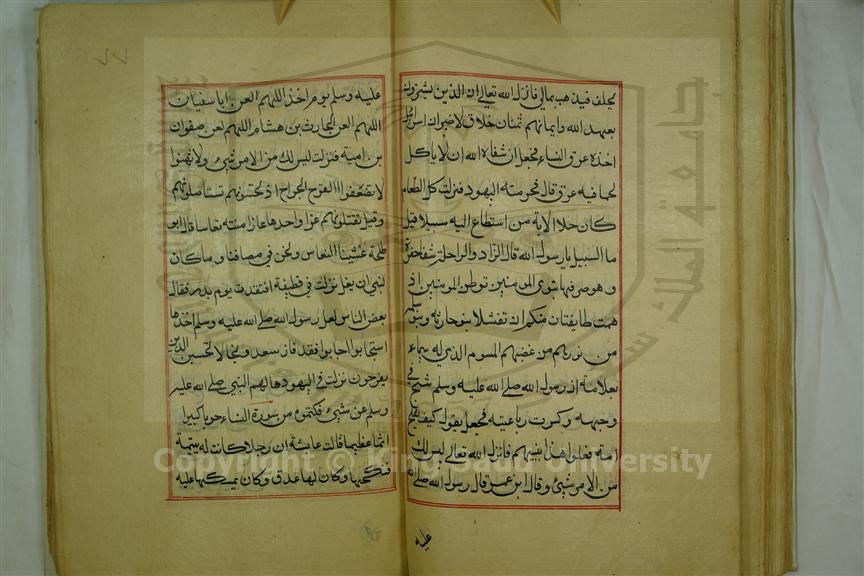 يحلف فيذهب بمالي فانزل الله تعالى ان الذين يشترون
بعهد الله وايمانهم ثمنا خلاق لا ضير ان اسرائيل
اخذه عرق النساء فجعل ان شفاه الله ان لا ياكل
لحما فيه عرق قال فحرمته اليهود فنزلت كل الطعام
كان حلا الاية من استطاع اليه سبيلا قيل
ما السبيل يا رسول الله قال الزاد والراحلة شفا حفرة
وهو حرفها تبوى المومنين توطن المومنين اذ
همت طايفتان منكم ان تفشلا بنو حارثة وبنو سلمة
من نورهم من غضبهم المسوم الذي له سيماء
بعلامة ان رسول الله صلى الله عليه وسلم شج في
وجهه وكسرت رباعيته فجعل يقول كيف يفلح
امة فعلوا هذا بنبيهم فانزل الله تعالى ليس لك
من الامر شيئ وقال ابن عمر قال رسول الله صلى الله
عليه
عليه وسلم يوم احد اللهم العن ابا سفيان
اللهم العن الحارث بن هشام اللهم لعن صفوان
بن امية فنزلت ليس لك من الامر شيئ ولا تهنوا
لا تضعفوا القرح الجراح اذ تحسونهم تستاصلونهم
وقيل تقتلونهم غزا واحدها غاز امنة نعاسا قال ابو
طلحة غشينا النعاس ونحن في مصافنا وما كان
لنبي ان يغل نزلت في قطيفة افتقدت يوم بدر فقال
بعض الناس لعل رسول الله صلى الله عليه وسلم اخذها
استجابوا اجابوا فقد فاز سعد ونجا لا تحسبن الذين
يفرحون نزلت في اليهود سالهم النبي صلى الله عليه
وسلم عن شيئ فكتموه من سورة النساء حوبا كبيرا
اثما عظيما قالت عايشة ان رجلا كانت له يتيمة
فنكحها وكان لها عذق وكان يمسكها عليه
Copyright © King Saud University
جامعة الملك سعود